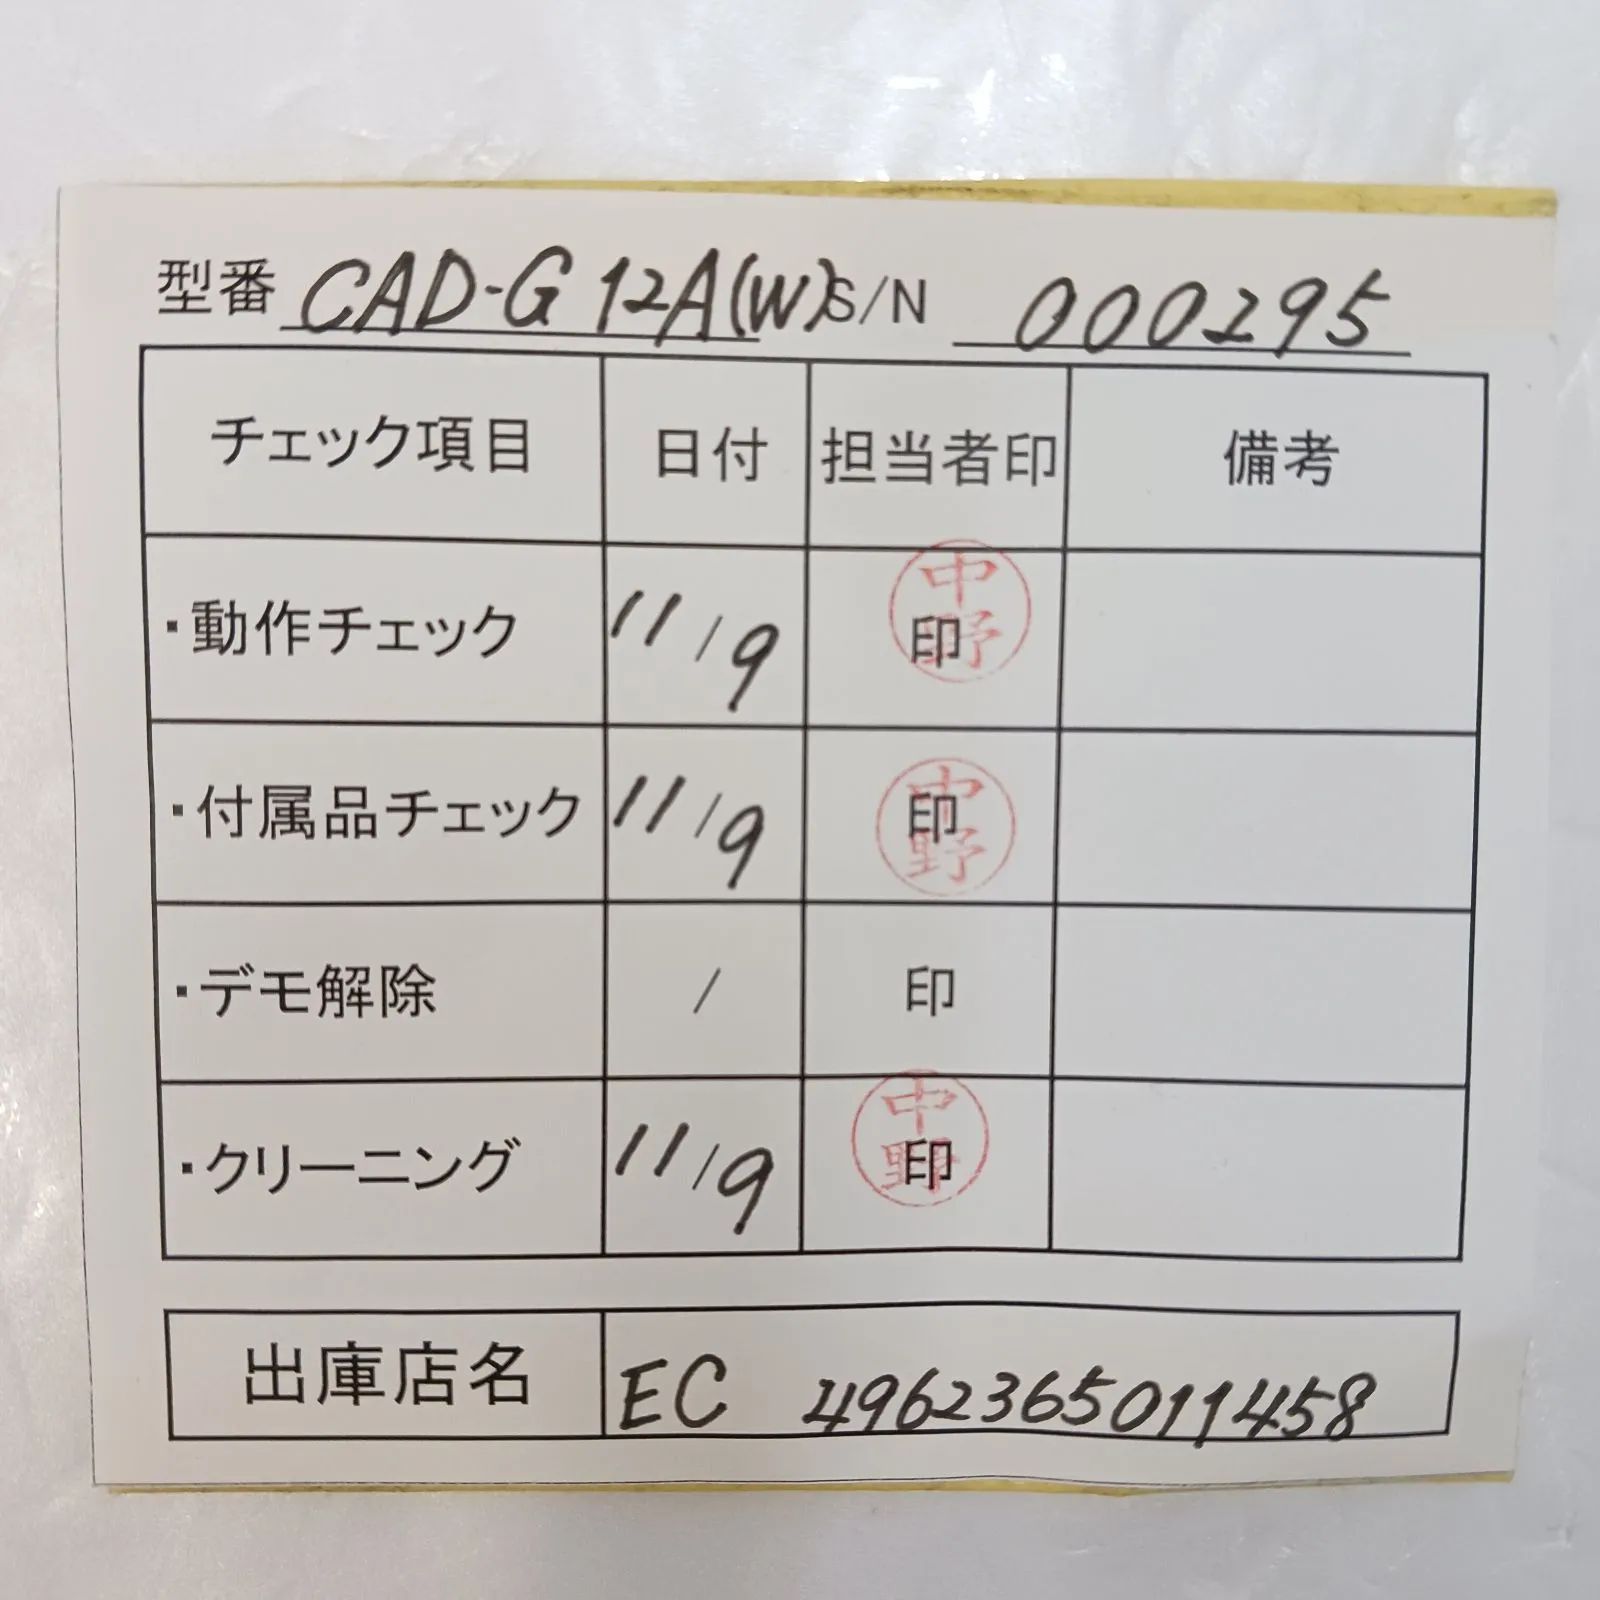 型番 CAD-G12A(W) S/N 000295
チェック項目 日付 担当者印 備考
・動作チェック 11/9 印 中野
・付属品チェック 11/9 印 中野
・デモ解除 / 印
・クリーニング 11/9 印 中野
出庫店名 EC 4962365011458